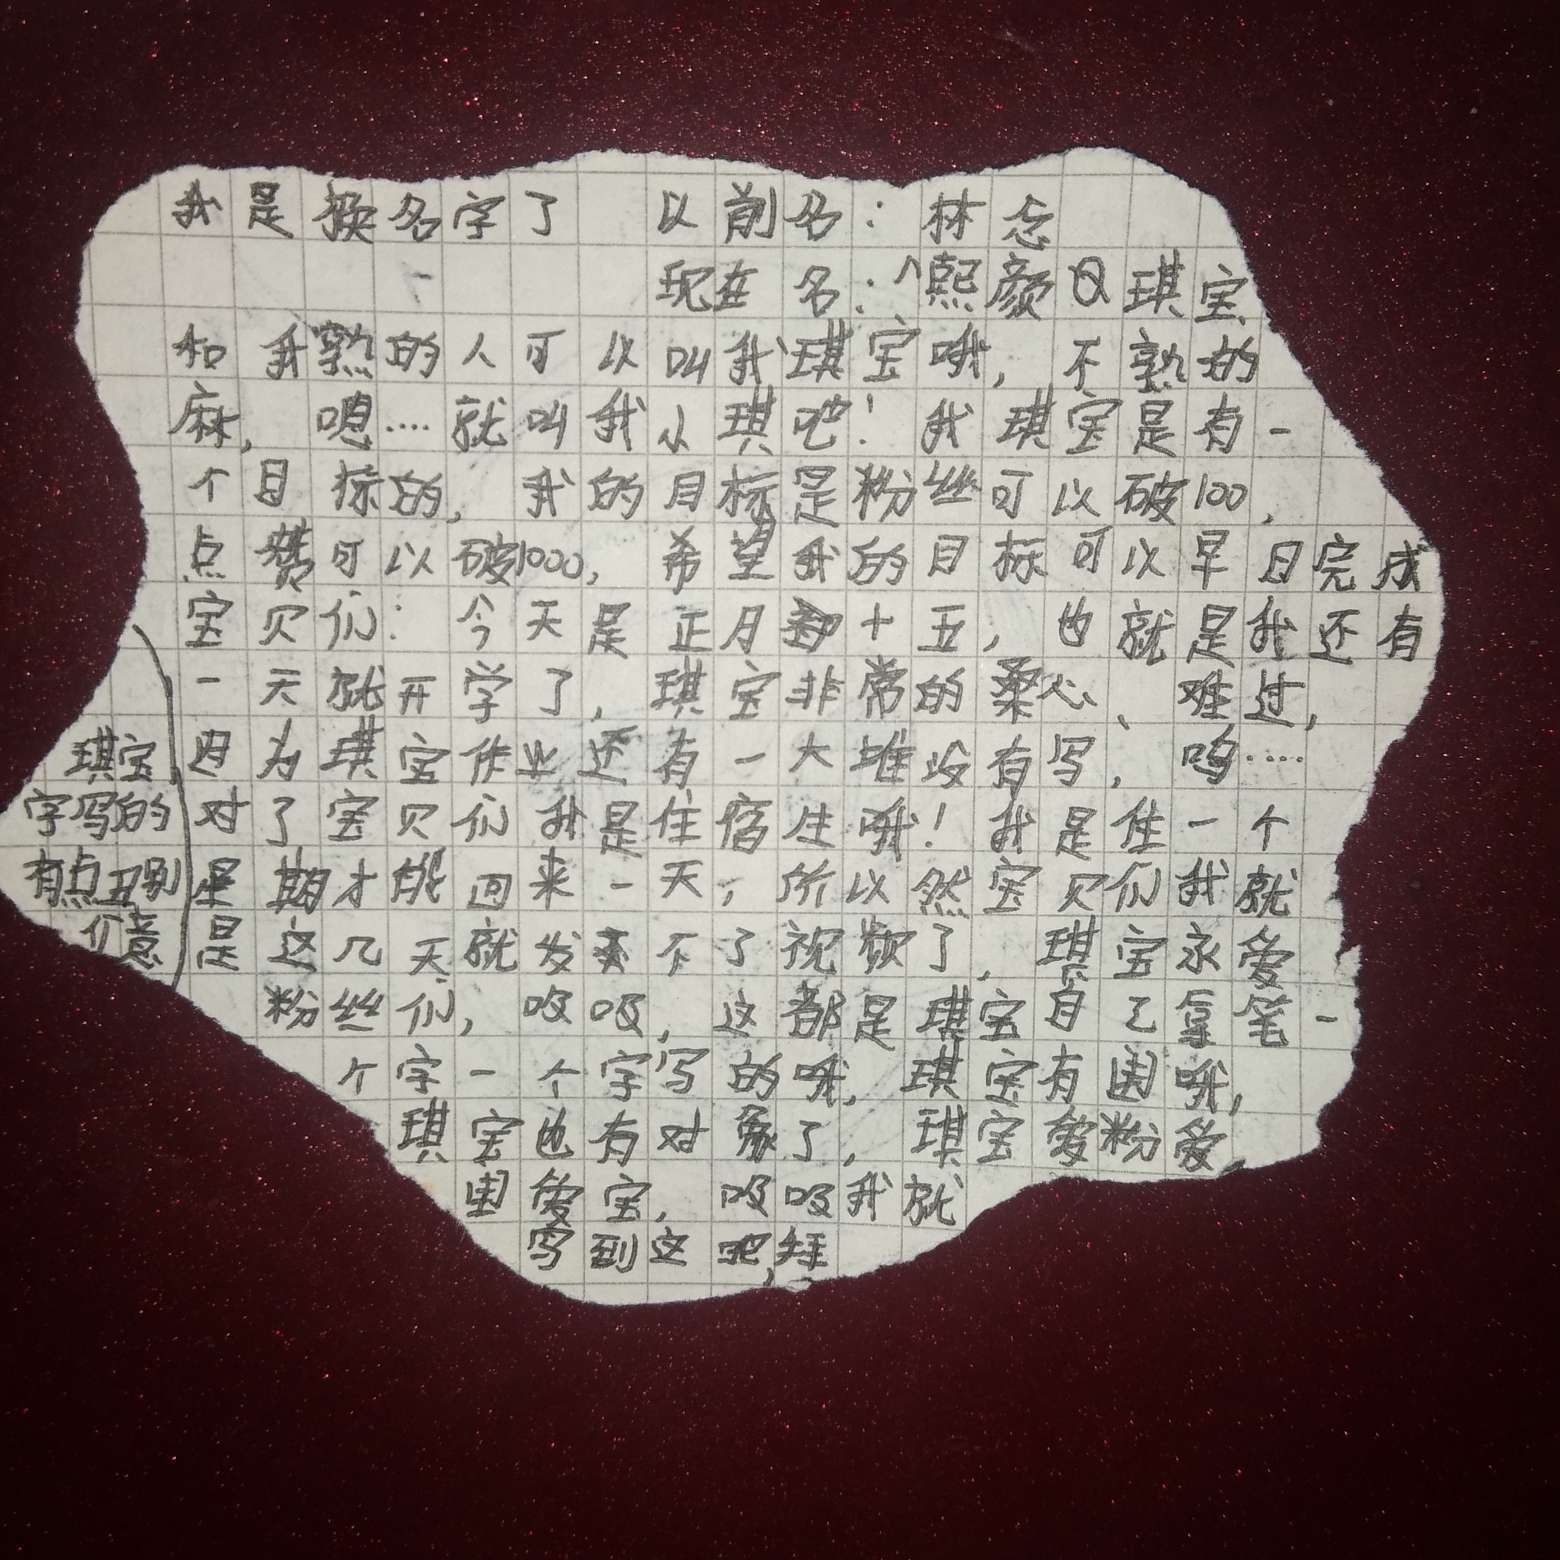 我是换名字了 以前名：林念
现在名：^熙颜Q琪宝
和我熟的人可以叫我琪宝哦，不熟的
麻，嗯····就叫我小琪吧！我琪宝是有一
个目标的，我的目标是粉丝可以破100，
点赞可以破1000，希望我的目标可以早日完成
宝贝们：今天是正月十五，也就是我还有
一天就开学了，琪宝非常的桑心、难过，
因为琪宝作业还有一大堆没有写，呜····
对了宝贝们我是住宿生哦！我是住一个
星期才能回来一天，所以然宝贝们我就
是这几天就发不了视频了，琪宝永爱
粉丝们，吸吸，这都是琪宝自己拿笔一
个字一个字写的哦，琪宝有围哦，
琪宝也有对象了，琪宝爱粉爱，
围爱宝，吸吸我就
写到这吧，拜
琪宝
字写的
有点丑别
介意